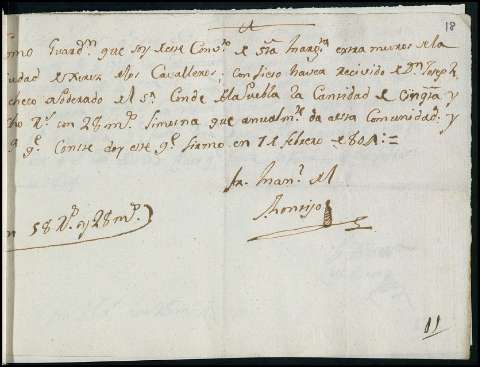 18
omo Guard.n que soy de este Conv.to de S.ta Marg.ta extra muros de la
iudad de Xerez de los Cavalleros; confieso haver recivido de D.n Joseph
checo Apoderado de el S.r Conde de la Puebla la Cantidad de cinq.ta y
cho R.s con 28 m.s limosna que anualm.te da a esta Comunidad: y
q.e Conste doy este q.e firmo en 7 de febrero de 801:=
fr. Man.l de el
58 R.s y 28 m.s
11